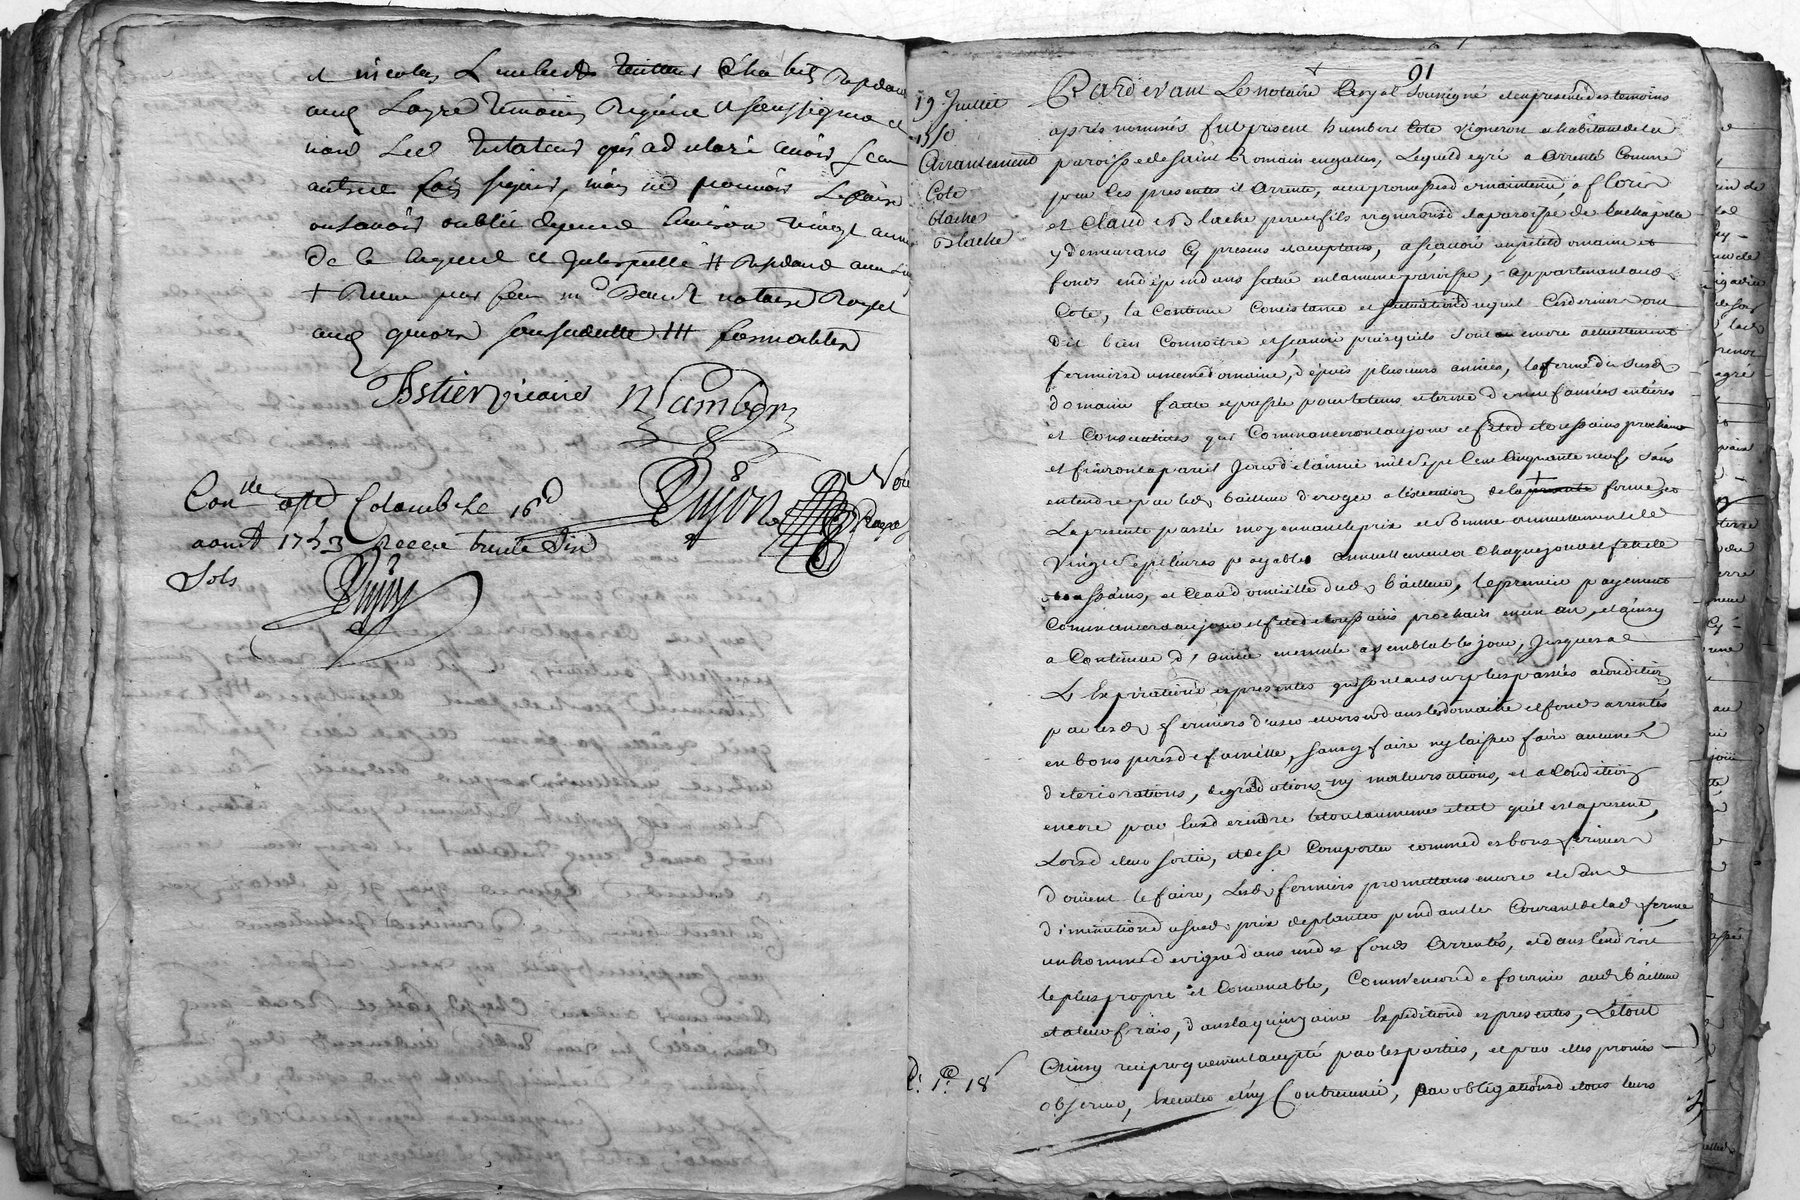 et nicolas Lambert Cha
aud Layre temoins requis et soussignés et
non Led testateur qui a declaré avoir sceu
autres fois signer, mais ne pouvoir Le faire
ou l'avoir oublié depuis environ vingt années
de ce enquis et interpellé # 
+ Receu par feu me notaire Royal
## 
Astier vicaire N Lambert
Dujon Nore Royal
Conlle Colombe le 16e
aoust 1753 Receu trente six
Sols
Dujon
91
19 Juillet
1750
Arrantement
Cote
blache
Blache
Pardevant Le notaire Royal soussigné et en presence des temoins
après nommés fut present humbert Cote vigneron et habitant de la
paroisse de saint Romain en gallier, Lequel de gré a arrenté comme
par ces presentes il arrente, avec promesse de maintenue, a floris
et Claude Blache pere et fils vignerons de la paroisse de
y demeurans Cy presens et acceptans, a sçavoir un petit domaine et
fonds en dépendans scitué en la meme paroisse, appartenant aud
Cote, la Contenue Consistance et situation duquel Ces derniers ont
dit bien Connoitre et sçavoir puisqu'ils sont encore actuellement
fermiers du meme domaine, depuis plusieurs années, la ferme du susd
domaine faitte et passée pour le tems et terme de neuf années entieres
et Consecutives qui Commanceront au jour et fete de toussains prochaine
et finiront a pareil Jour de l'année mil sept Cent Cinquante neuf, sans
entendre par led bailleur deroger a l'execution de la ferme, et
La presente passée moyennant le prix et somme annuellement de
vingt sept livres payables annuellement a Chaque jour et fete de
toussains, et au domicille dud bailleur, le premier payement
Commencera au jour et fete de toussains prochain en un an, et ainsy
a Continuer d'année en année a semblable jour, Jusques a
L'expiration des presentes qui sont au surplus passées a condition
par lesd fermiers d'user et verser dans led domaine et fonds arrentés
en bons peres de famille, sans y faire ny laisser faire aucunes
deteriorations, degradations ny malversations, et a Condition
encore par eux de rendre le tout au meme etat qu'il est a present,
Lors de leur sortie, et de se Comporter comme de bons fermiers
doivent le faire, Lesd fermiers promettans encore et sans
diminution du susd prix de planter pendant le Courant de lad ferme
un homme de vigne dans un des fonds arrentés, et dans l'endroit
le plus propre et Convenable, Comm'encore de fournir aud bailleur
et a leur frais, dans la quinzaine Expedition des presentes, Le tout
Ainsy reciproquement accepté par les parties, et par elles promis
observer, Executer et n'y Contrevenir, par obligations de tous leurs